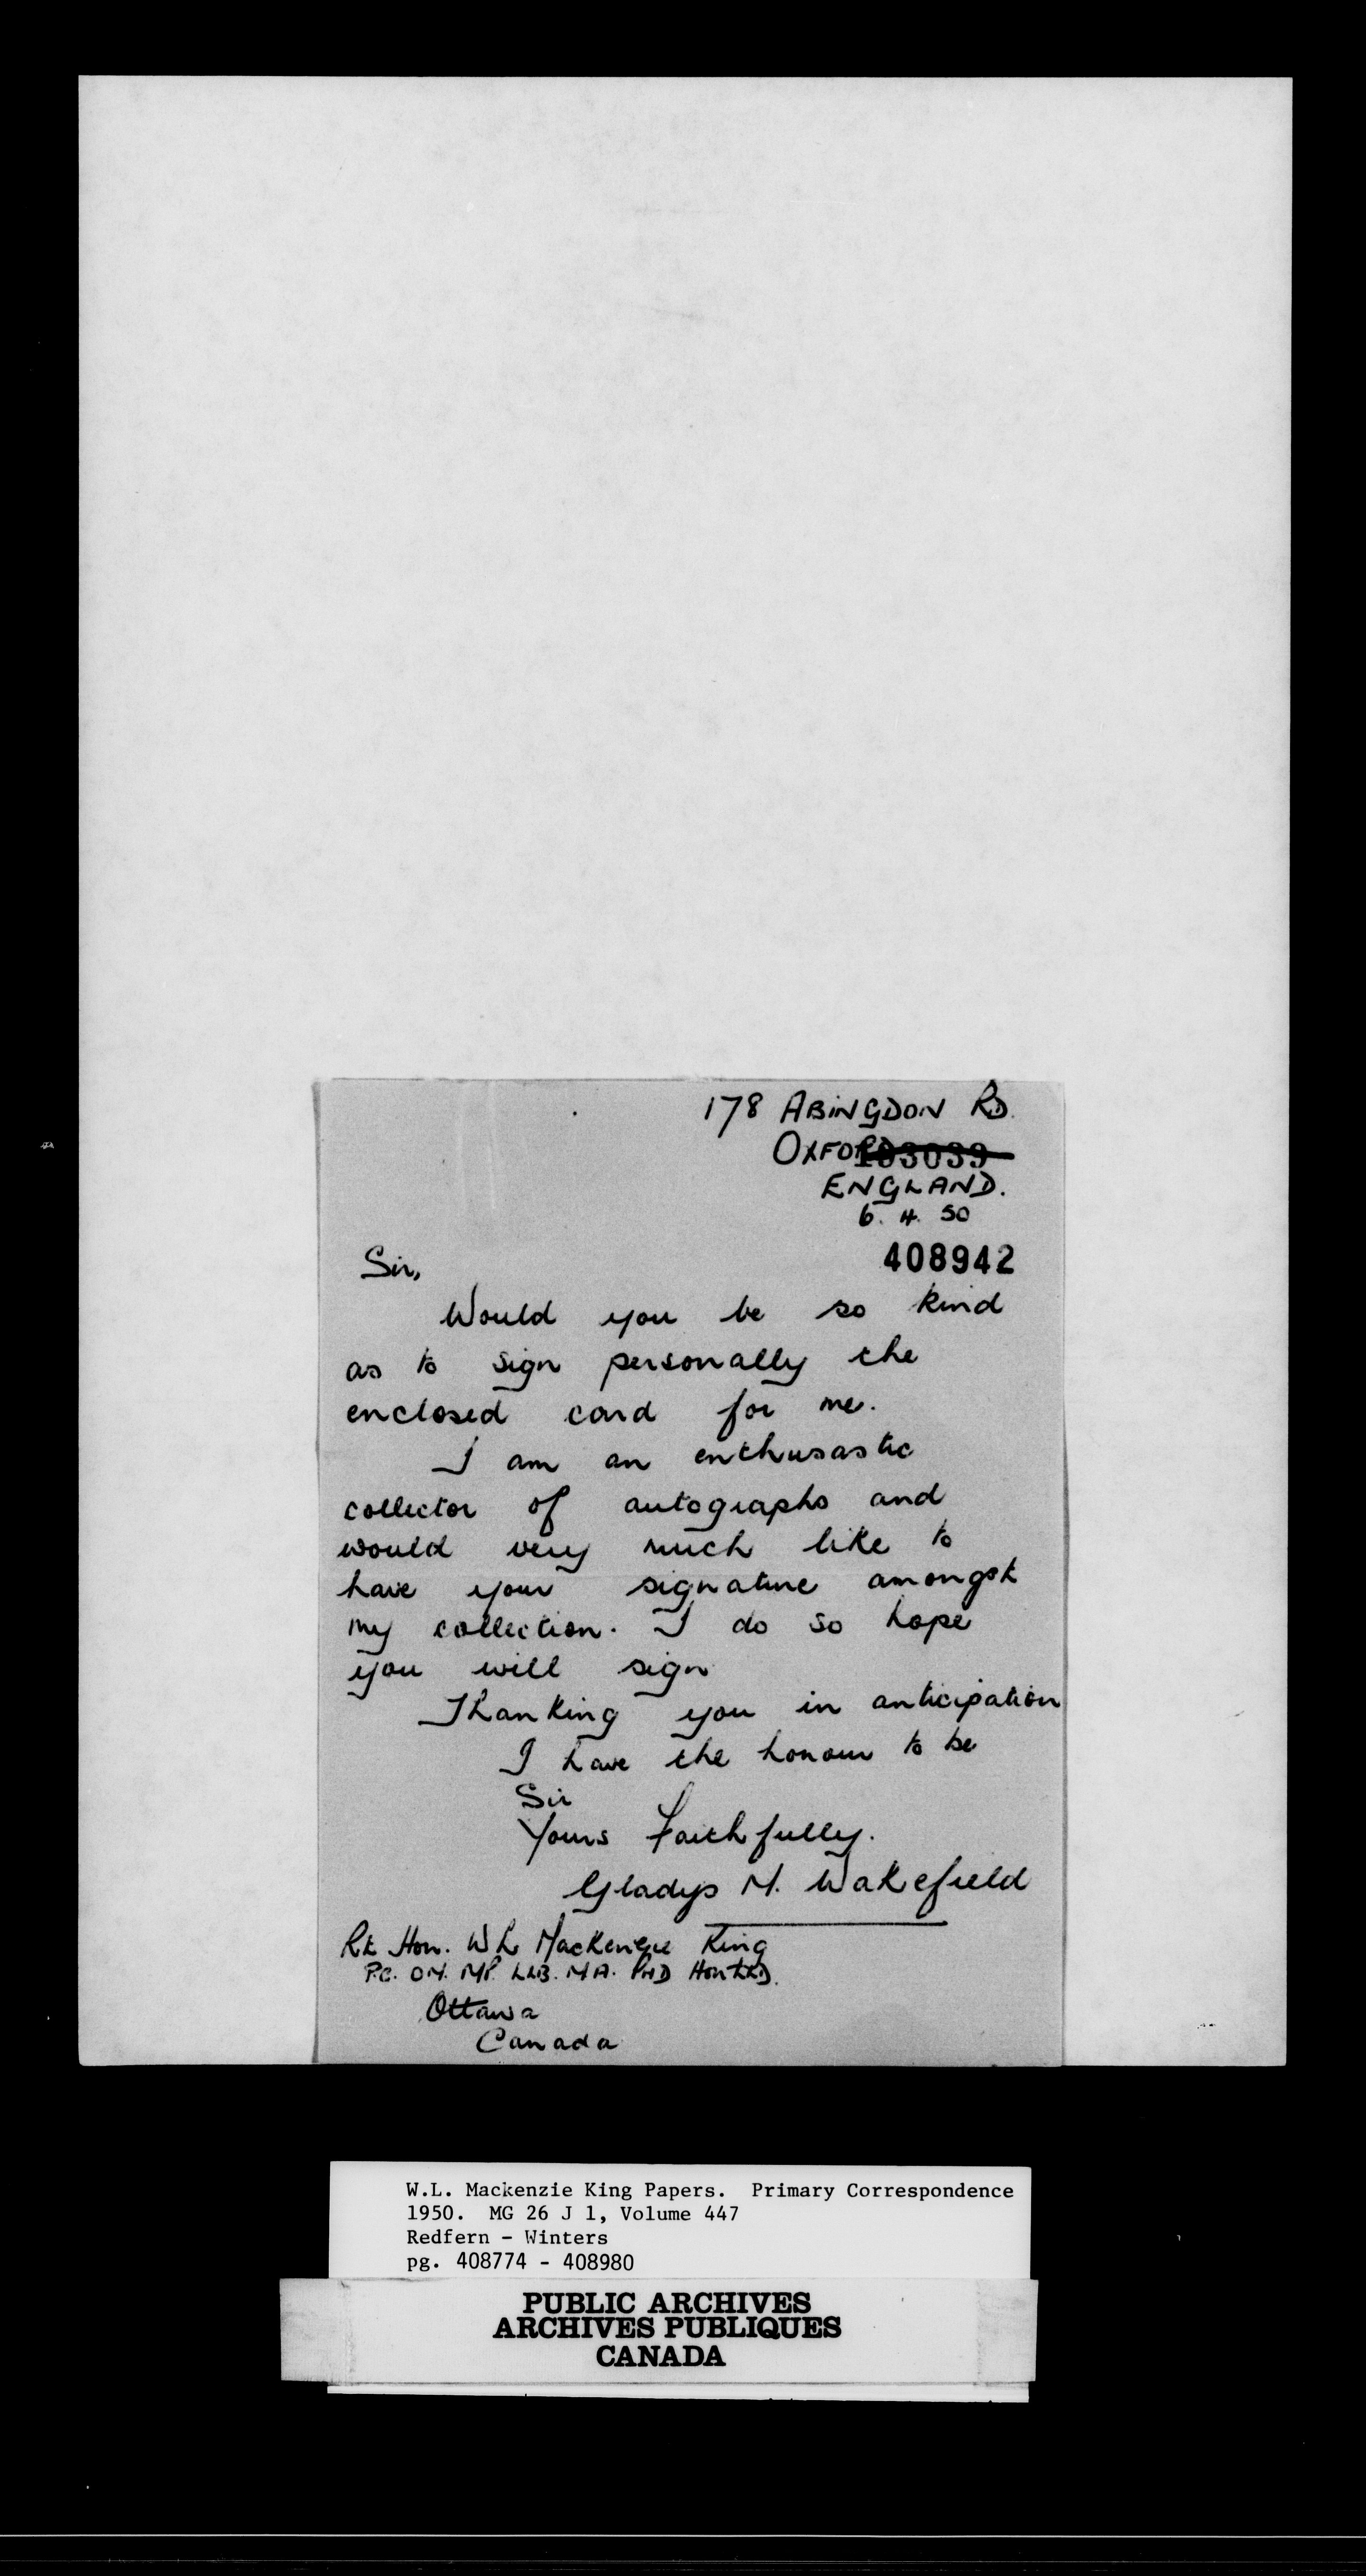 178 ABINGDON RD.
OXFORD 193039
ENGLAND.
6. 4. 50
408942
Sir,
Would you be so kind
as to sign personally the
enclosed card for me.
I am an enthusastic
collector of autographs and
would very much like to
have your signature amongst
my collection. I do so hope
you will sign
Thanking you in anticipation
I have the honour to be
Sir
Yours Faithfully.
Gladys M. Wakefield
Rt Hon. W L MacKenzie King
P.C. OM. MP. LLB. MA. PHD Hon LLD.
Ottawa
Canada
W.L. Mackenzie King Papers. Primary Correspondence
1950. MG 26 J 1, Volume 447
Redfern - Winters
pg. 408774 - 408980
PUBLIC ARCHIVES
ARCHIVES PUBLIQUES
CANADA